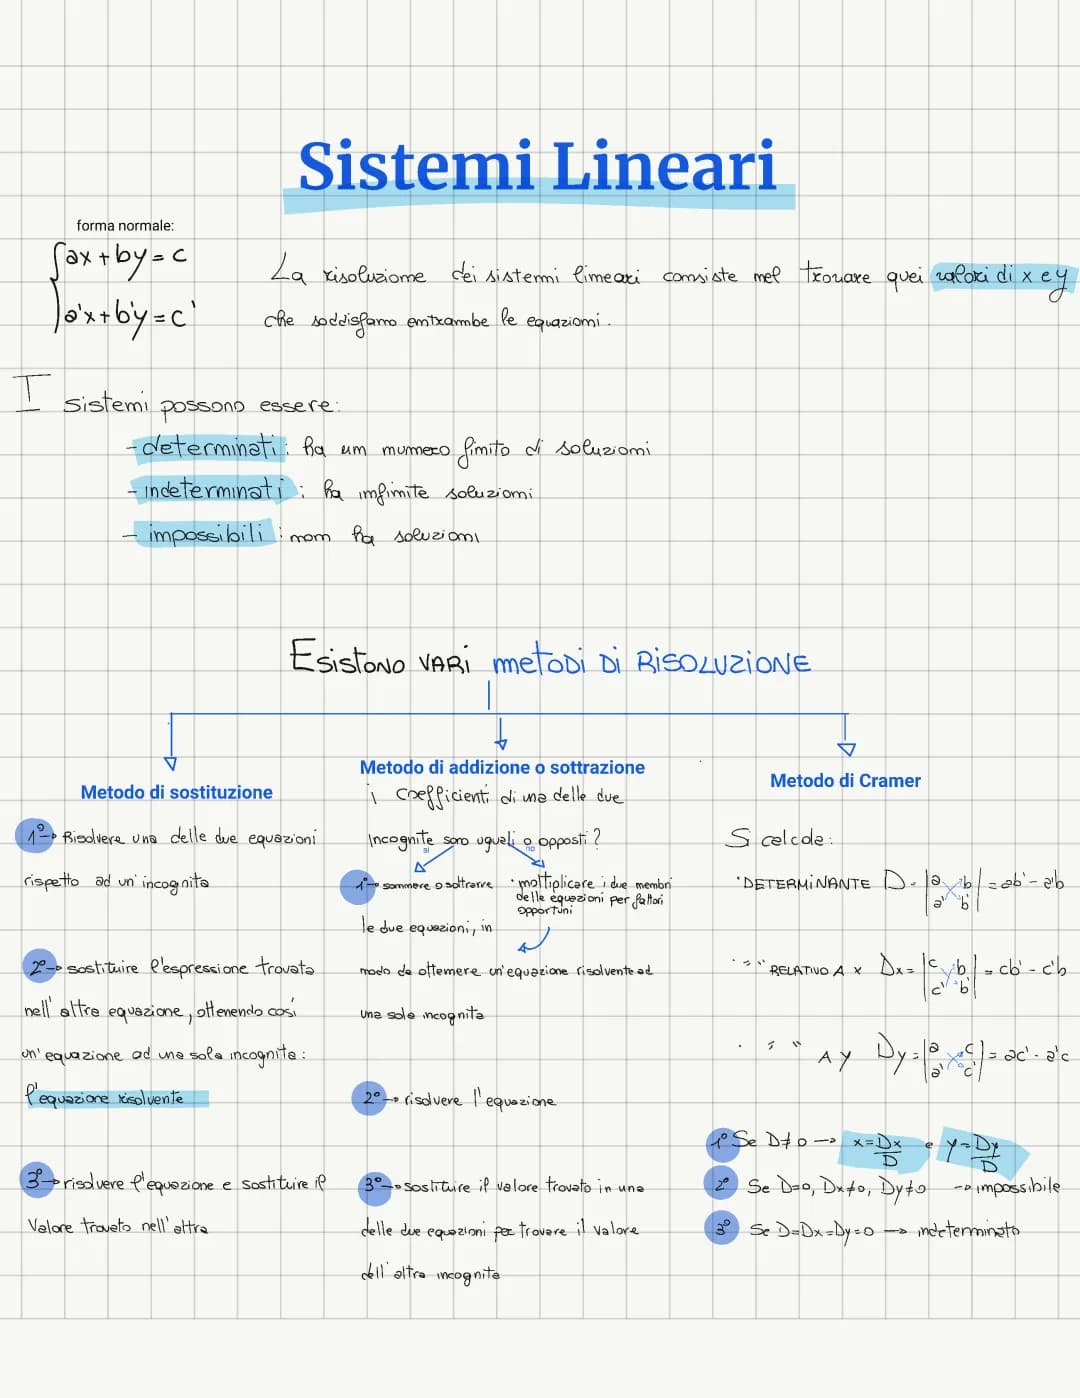 Sistemi Lineari
forma normale:
ax + by = c
a'x + b'y = c'
La risoluzione dei sistemi lineari consiste nel trovare quei valori di x e y
che soddisfano entrambe le equazioni.
I sistemi possono essere:
- determinati: ha un numero finito di soluzioni
- indeterminati: ha infinite soluzioni
- impossibili: non ha soluzioni
Esistono vari metodi di risoluzione
Metodo di sostituzione
1° → Risolvere una delle due equazioni
rispetto ad un'incognita
2° → sostituire l'espressione trovata
nell'altra equazione, ottenendo così
un'equazione ad una sola incognita:
l'equazione risolvente
3° → risolvere l'equazione e sostituire il
valore trovato nell'altra
Metodo di addizione o sottrazione
i coefficienti di una delle due
Incognite sono uguali o opposti?
si no
1° → sommare o sottrarre
le due equazioni, in
· moltiplicare i due membri
delle equazioni per fattori
opportuni
modo da ottenere un'equazione risolvente ad
una sola incognita
2° → risolvere l'equazione
3° → sostituire il valore trovato in una
delle due equazioni per trovare il valore
dell'altra incognita
Metodo di Cramer
Si calcola:
· DETERMINANTE D = |a b a' b'| = ab' - a'b
· " " RELATIVO A x Dx = |c b c' b'| = cb' - c'b
· " " A y Dy = |a c a' c'| = ac' - a'c
1° Se D≠0 → x = Dx/D e y = Dy/D
2° Se D=0, Dx≠0, Dy≠0 → impossibile
3° Se D=Dx=Dy=0 → indeterminato